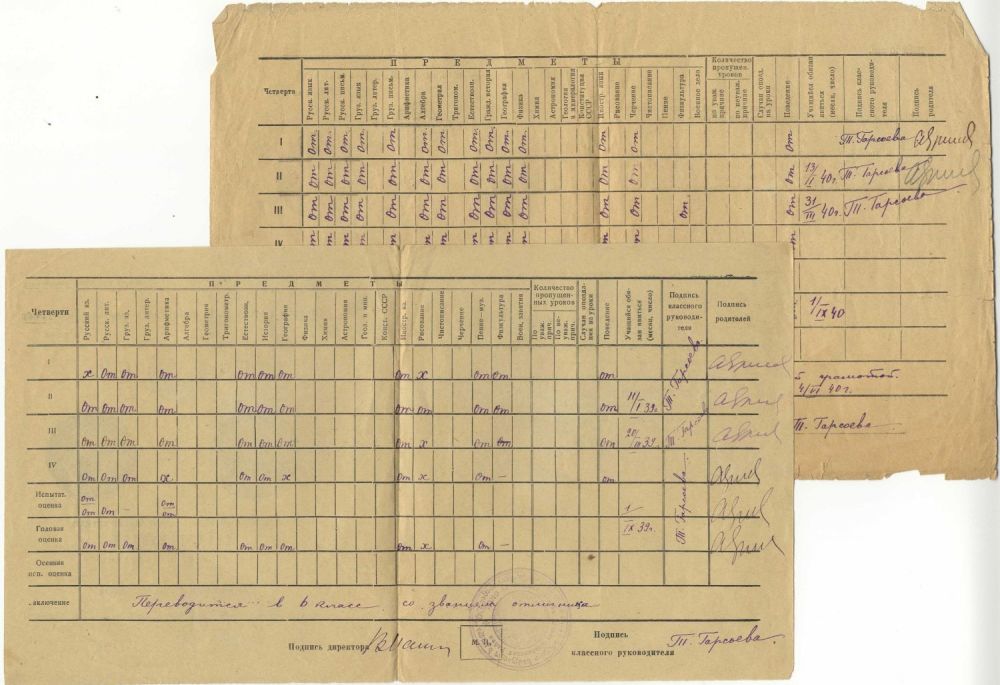 П Р Е Д М Е Т Ы
Четверти
Русск. язык
Русск. лит.
Русск. письм.
Груз. язык
Груз. литер.
Груз. письм.
Арифметика
Алгебра
Геометрия
Тригоном.
Естествозн.
Гражд. история
География
Физика
Химия
Астрономия
Геология и минералогия
Конституция СССР
Иностр. язык
Рисование
Черчение
Чистописание
Пение
Физкультура
Военное дело
Количество пропущен. уроков
по уваж. причине
по неуваж. причине
Случаи опозд. на уроки
Поведение
Учащийся обязан явиться (месяц, число)
Подпись классного руководителя
Подпись родителя
I от. от. от. от. от от. от от от. от от от от от Т. Гарсоева
II от от от от от от от от от от от от от от от 13/II 40г. Т. Гарсоева
III от от от от от от от от от от от от от от от от 31/III 40г. Т. Гарсоева
IV от от от от от от от от от от от от от от от
1/IX 40
грамотой.
4/VI 40г.
Т. Гарсоева
П Р Е Д М Е Т Ы
Четверти
Русский яз.
Русск. лит.
Груз. яз.
Груз. литер.
Арифметика
Алгебра
Геометрия
Тригонометр.
Естествозн.
История
География
Физика
Химия
Астрономия
Геол. и мин.
Конст. СССР
Иностр. яз.
Рисование
Чистописание
Черчение
Пение—муз.
Физкультура
Воен. занятия
Количество пропущенных уроков
По уваж. прич.
По неуваж. прич.
Случаи опоздания на уроки
Поведение
Учащийся обязан явиться (месяц, число)
Подпись классного руководителя
Подпись родителей
I х от от от от от от от х от от от Т. Гарсоева
II от от от от от от от от от от от от 11/I 39г.
III от от от от от от от от х от от от 20/III 39г. Т. Гарсоева
IV от от от х от от х от х от — от Т. Гарсоева
Испытат. оценка от от от - от от 1/IX 39г.
Годовая оценка от от от от от от от от х от —
Осенняя исп. оценка
Заключение Переводится в 6 класс со званием отличника
Подпись директора
М. П.
Подпись классного руководителя Т. Гарсоева.